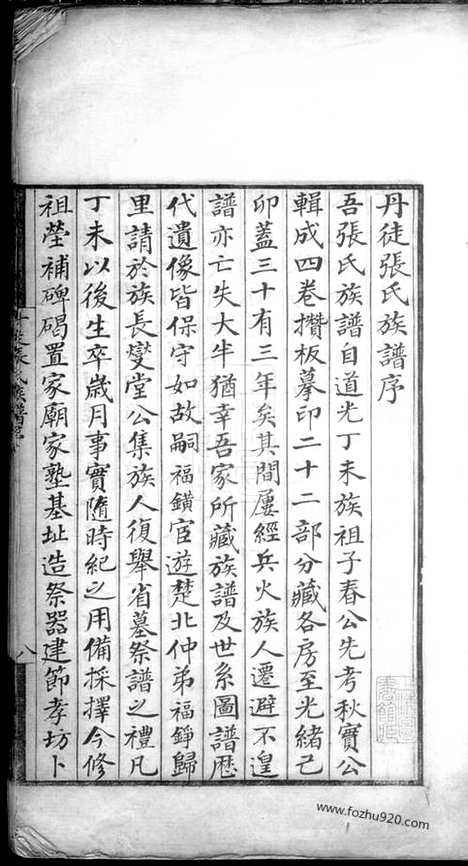 丹徒張氏族譜序
吾張氏族譜自道光丁未族祖子春公先考秋實公
輯成四卷攢板摹印二十二部分藏各房至光緒己
卯蓋三十有三年矣其間屢經兵火族人遷避不遑
譜亦亡失大半猶幸吾家所藏族譜及世系圖譜歷
代遺像皆保守如故嗣福鐄宦遊楚北仲弟福錚歸
里請於族長燮堂公集族人復舉省墓祭譜之禮凡
丁未以後生卒歲月事實隨時紀之用備採擇今修
祖塋補碑碣置家廟家塾基址造祭器建節孝坊卜
八
www.fozhu920.com